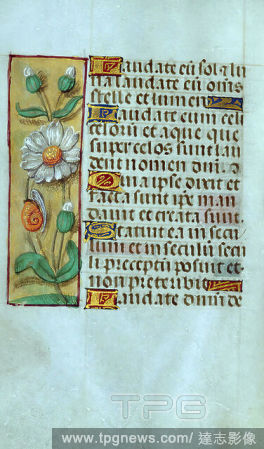 Laudate eū sol & lu
na laudate eū om̄s
stelle et lumen
Laudate eum celi
celorū et aque que
super celos sunt lau
dent nomen dn̄i.
Quia ipse dixit et
facta sunt ipe man
dauit et creata sunt.
Statuit ea in secu
lum et in seculū secu
li preceptū posuit et
non preteribit
Laudate dnm de
TPG
www.tpgnews.com/ 達志影像